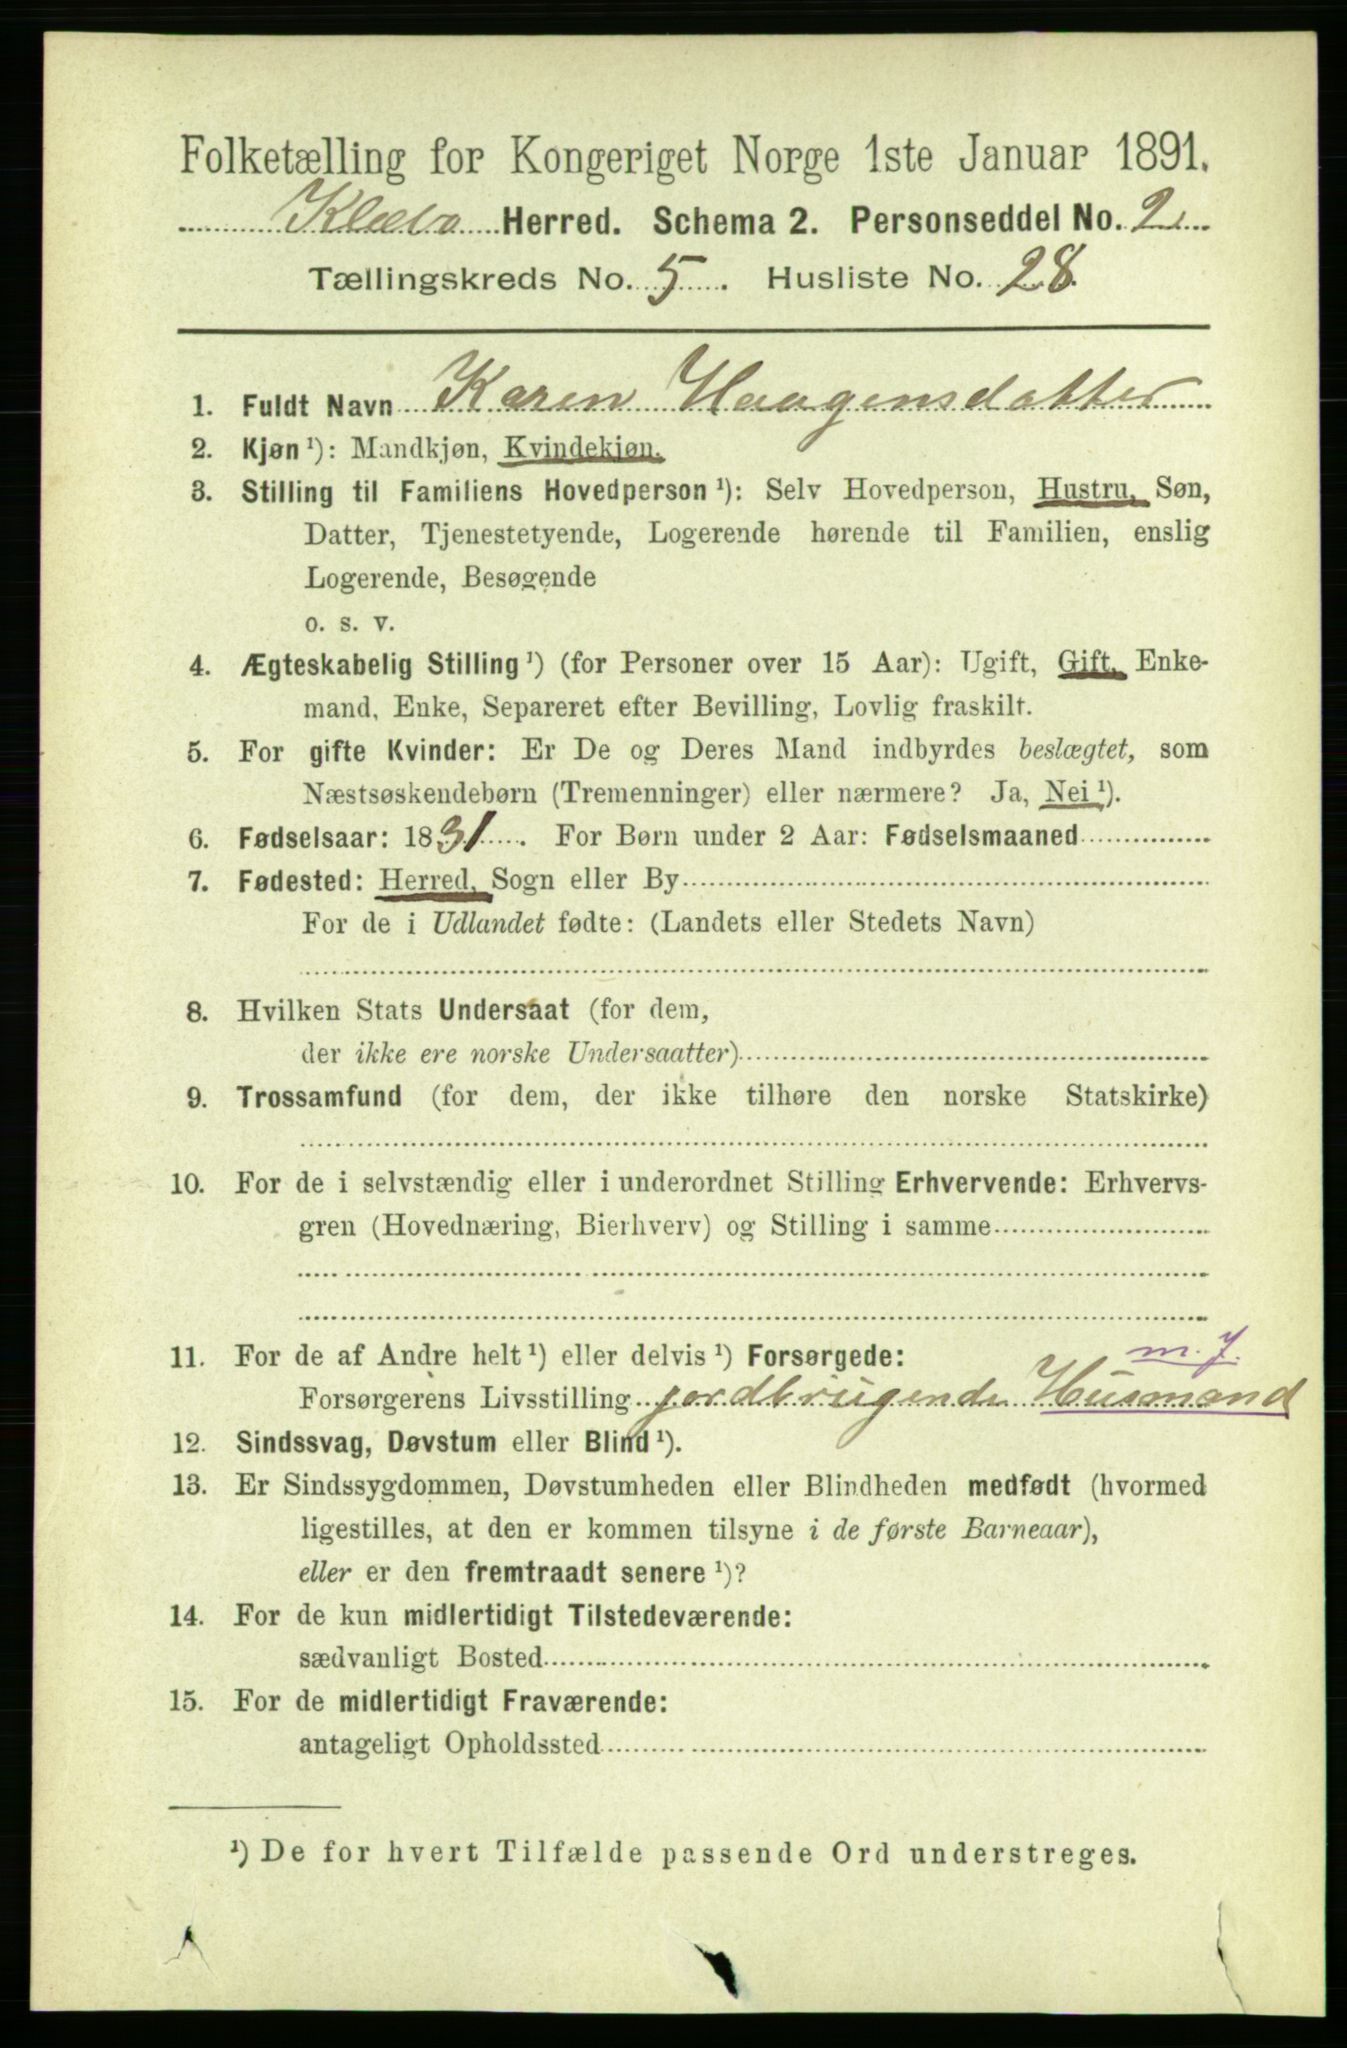 Folketælling for Kongeriget Norge 1ste Januar 1891.
Klæbo Herred. Schema 2. Personseddel No. 2
Tællingskreds No. 5. Husliste No. 28.
1. Fuldt Navn Karen Haagensdatter
2. Kjøn ¹): Mandkjøn, Kvindekjøn.
3. Stilling til Familiens Hovedperson ¹): Selv Hovedperson, Hustru, Søn,
Datter, Tjenestetyende, Logerende hørende til Familien, enslig
Logerende, Besøgende
o. s. v.
4. Ægteskabelig Stilling ¹) (for Personer over 15 Aar): Ugift, Gift, Enke-
mand, Enke, Separeret efter Bevilling, Lovlig fraskilt.
5. For gifte Kvinder: Er De og Deres Mand indbyrdes beslægtet, som
Næstsøskendebørn (Tremenninger) eller nærmere? Ja, Nei ¹).
6. Fødselsaar: 1831. For Børn under 2 Aar: Fødselsmaaned
7. Fødested: Herred, Sogn eller By
For de i Udlandet fødte: (Landets eller Stedets Navn)
8. Hvilken Stats Undersaat (for dem,
der ikke ere norske Undersaatter)
9. Trossamfund (for dem, der ikke tilhøre den norske Statskirke)
10. For de i selvstændig eller i underordnet Stilling Erhvervende: Erhvervs-
gren (Hovednæring, Bierhverv) og Stilling i samme
11. For de af Andre helt ¹) eller delvis ¹) Forsørgede:
m. J.
Forsørgerens Livsstilling jordbrugende Husmand
12. Sindssvag, Døvstum eller Blind ¹).
13. Er Sindssygdommen, Døvstumheden eller Blindheden medfødt (hvormed
ligestilles, at den er kommen tilsyne i de første Barneaar),
eller er den fremtraadt senere ¹)?
14. For de kun midlertidigt Tilstedeværende:
sædvanligt Bosted
15. For de midlertidigt Fraværende:
antageligt Opholdssted
¹) De for hvert Tilfælde passende Ord understreges.